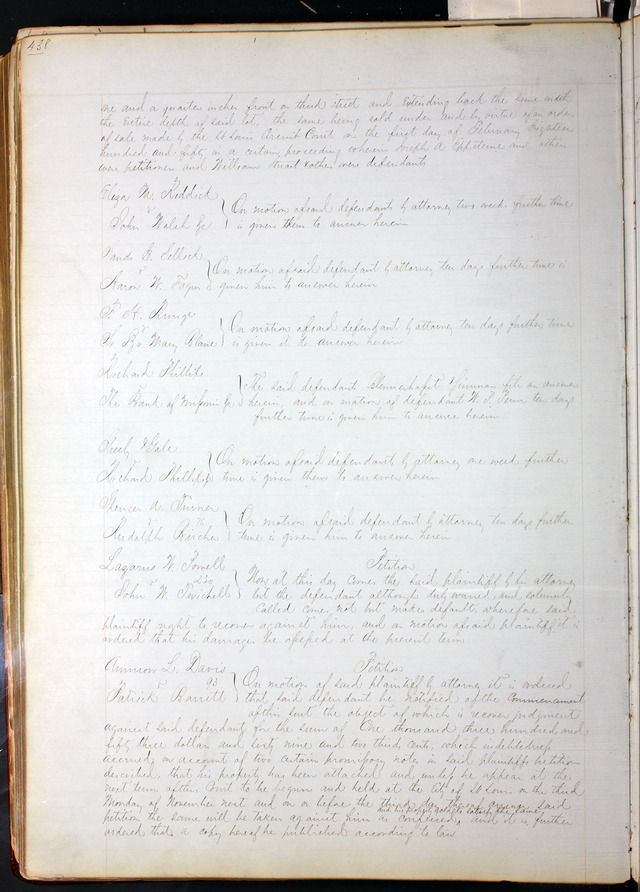 438
one and a quarter inches front on third street and Extending back the same width
the Entire depth of said lot, the same being sold under and by virtue of an order
of sale made by the St Louis Circuit Court on the first day of February Eighteen
hundred and fifty in a certain proceeding wherein Joseph A and others
were petitioners and William Stuart & others were defendants
Eliza M. Riddick
vs
John Walsh &c
On motion of said defendants by attorney two weeks further time
is given them to answer herein
vs
Aaron W. Fagin
On motion of said defendant by attorney ten days further time is
given him to answer herein
H. Runge
vs
St Bt Mary Blane
On motion of said defendant by attorney ten days further time
is given it to answer herein
Richard Phillips
vs
The Bank of &c
The said defendants file an answer
herein, and on motion of defendant W. S. ten days
further time is given him to answer herein
& Gale
vs
Richard Phillips
On motion of said defendant by attorney one week further
time is given them to answer herein
Spencer A. Turner
vs
Rudolph
On motion of said defendant by attorney ten days further
time is given him to answer herein
Lazarus W. Powell
vs
John W. Twichell
Petition
Now at this day comes the said plaintiff by his attorney
but the defendant although duly warned, and solemnly
Called comes not but makes default; wherefore said
plaintiff ought to recover against him, and on motion of said plaintiff it is
ordered that his damages be assessed at the present term
L. Davis
vs 93
Patrick Barrett
Petition
On motion of said plaintiff by attorney it is ordered
that said defendant be notified of the Commencement
of this suit the object of which is recover judgment
against said defendant for the sum of One thousand three hundred and
fifty three dollars and sixty nine and two thirds cents, which indebtedness
accrued on account of two certain promissory notes in said plaintiffs petition
described, that his property has been attached and unless he appear at the
next term of this Court to be begun and held at the City of St Louis on the third
Monday of November next and on or before the third day thereof answer said
and his property sold to satisfy the same
petition the same will be taken against him as confessed, and it is further
ordered that a copy hereof be published according to law